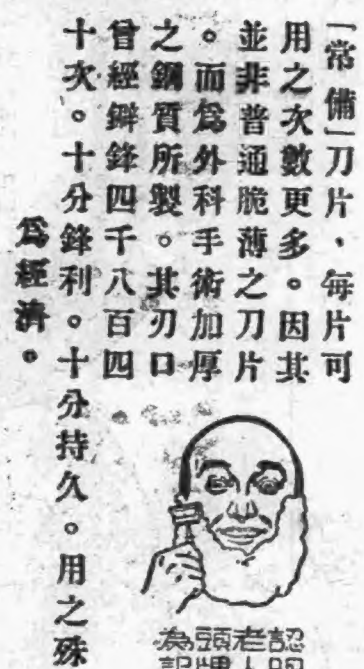 「常備」刀片、每片可
用之次數更多。因其
並非普通脆薄之刀片
。而爲外科手術加厚
之鋼質所製。其刃口
曾經鋒四千八百四
十次。十分鋒利。十分持久。用之殊
爲經濟。
認明
老人
頭牌
為記